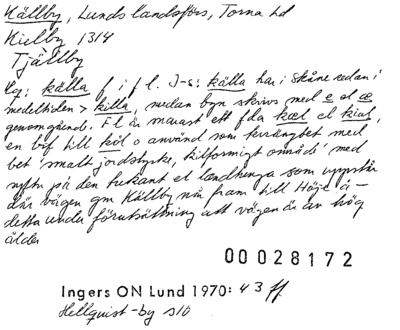 Källby, Lunds landsförs, Torna hd
Kielby 1314
Tjällby
Eg: källa f i f l. J-s: källa har i Skåne redan i
medeltiden > killa, medan byn skrivs med e el æ
genomgående. F l är snarast ett fda kæl el kial,
en bif till köl o använd som beträngbet med
bet 'smalt jordstycke, kilformigt område' med
syftn på den trekant el landtunga som uppstår
där vägen gm Källby når fram till Höje å –
detta under förutsättning att vägen är av hög
ålder
00028172
Ingers ON Lund 1970: 43 ff.
Hellquist-by s10